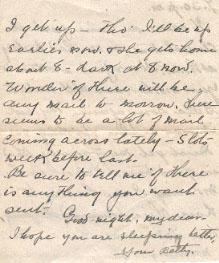 I get up - Tho' I'll be up
earlier now. & she gets home
about 8 - dark at 8 now.
Wonder if there will be
any mail to morrow. There
seems to be a lot of mail
coming across lately - Slots
week before last.
Be sure to tell me if there
is anything you want
sent. Good night, my dear.
I hope you are sleeping better
Your